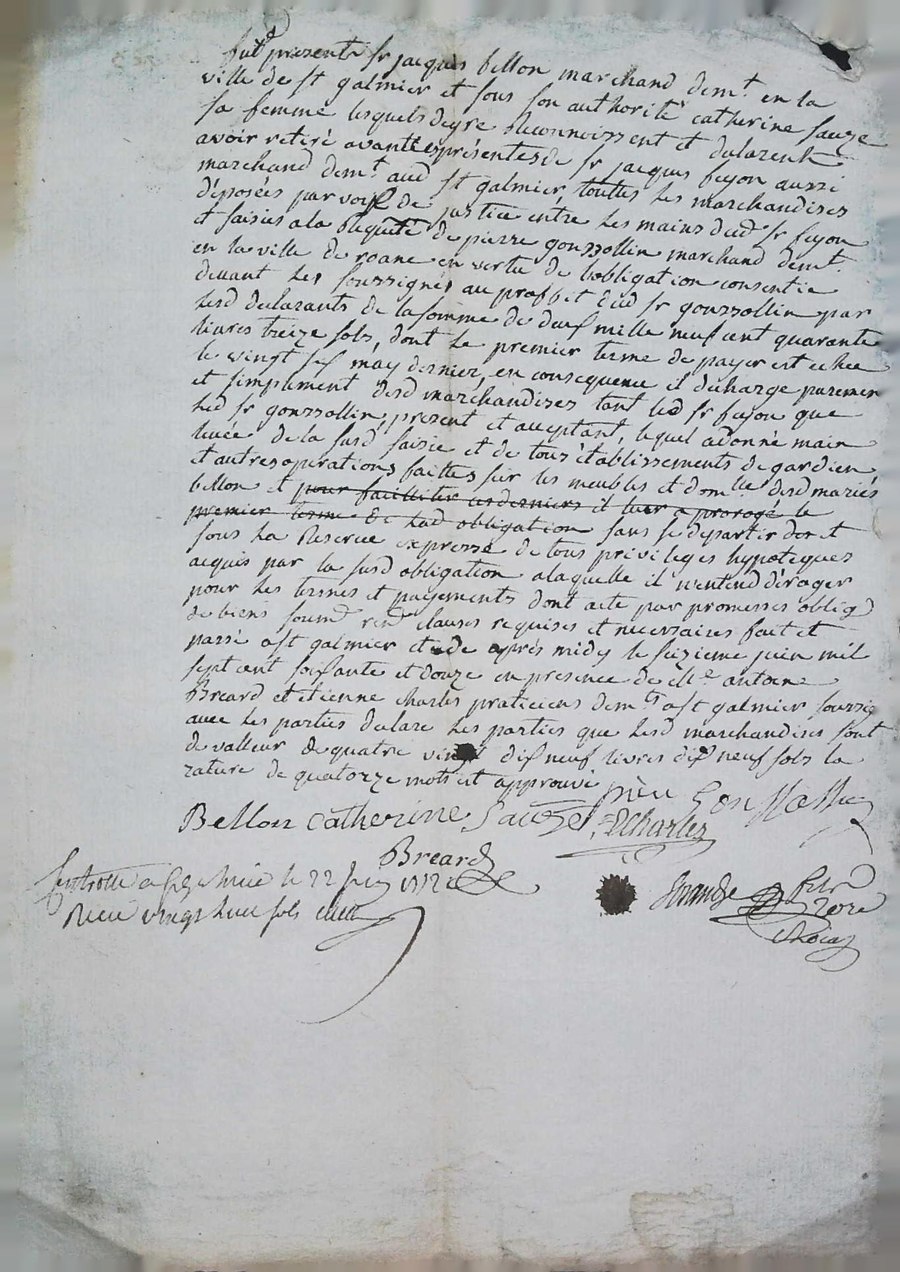 fut présent Sr jacques bellon marchand demt. en la
ville de st galmier et sous son authorité catherine sauze
sa femme lesquels de gre Reconnoissent et declarent
avoir retiré avant ces présentes de Sr jacques fujon aussi
marchand demt. aud st galmier, touttes les marchandises
déposées par voye de justice entre les mains dud Sr fujon
et saisies a la Requete de pierre gonssollin marchand demt.
en la ville de roane en vertu de l'obligation consentie
devant les soussignés au proffit dud Sr gonssollin par
lesd declarants de la somme de deux mille neuf cent quarante
livres treize sols, dont le premier terme de payer est echeu
le vingt six may dernier, en consequence il décharge purement
et simplement desd marchandises tant led Sr fujon que
led Sr gonssollin, present et acceptant, lequel a donné main
levée de la susd saisie et de tous établissements de gardien
et autres operations faittes sur les meubles et domlle desd mariés
bellon et pour faciliter ces derniers il leur a prorogé le
premier terme de lad obligation sans se départir dont
sous la Reserve expresse de tous privileges hypoteques
acquis par la susd obligation a laquelle il n'entend déroger
pour les termes et payements dont acte par promesses oblig
de biens soumd rend clauses requises et necessaires fait et
passé a st galmier etude après midy le seizieme juin mil
sept cent soixante et douze en presence de Me antoine
Breard et etienne charles praticiens demts. a st galmier soussig
avec les parties declare les parties que lesd marchandises sont
de valleur de quatre vingt dix neuf livres dix neuf sols la
rature de quatorze mots est approuvé
Bellon catherine Sauze
Charles
Breard
Controllé a le 22 juin 1772
Recu vingt huit sols